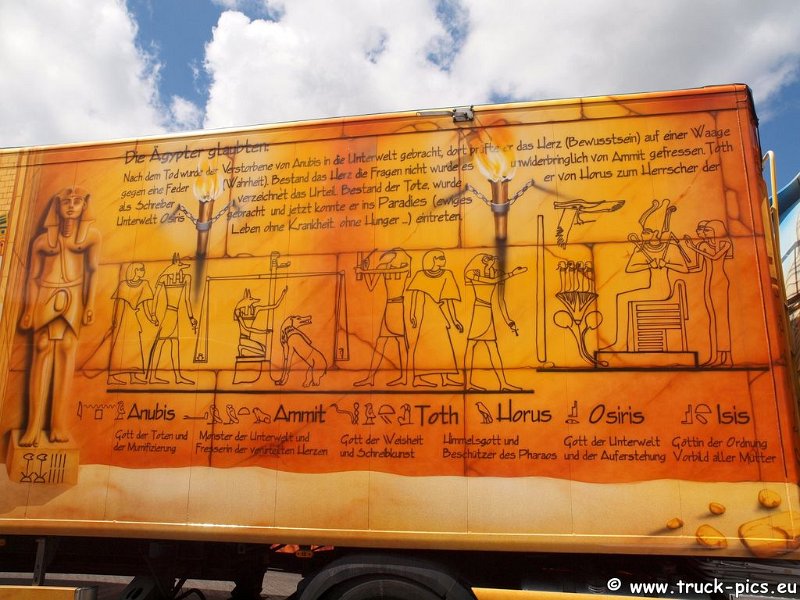 Die Ägypter glaubten:
Nach dem Tod wurde der Verstorbene von Anubis in die Unterwelt gebracht, dort prüfte er das Herz (Bewusstsein) auf einer Waage
gegen eine Feder (Wahrheit). Bestand das Herz die Fragen nicht wurde es unwiderbringlich von Ammit gefressen. Toth
als Schreiber verzeichnet das Urteil. Bestand der Tote, wurde er von Horus zum Herrscher der
Unterwelt Osiris gebracht und jetzt konnte er ins Paradies (ewiges
Leben ohne Krankheit, ohne Hunger ...) eintreten.
Anubis Ammit Toth Horus Osiris Isis
Gott der Toten und Monster der Unterwelt und Gott der Weisheit Himmelsgott und Gott der Unterwelt Göttin der Ordnung
der Mumifizierung Fresserin der verurteilten Herzen und Schreibkunst Beschützer des Pharaos und der Auferstehung Vorbild aller Mütter
© www.truck-pics.eu